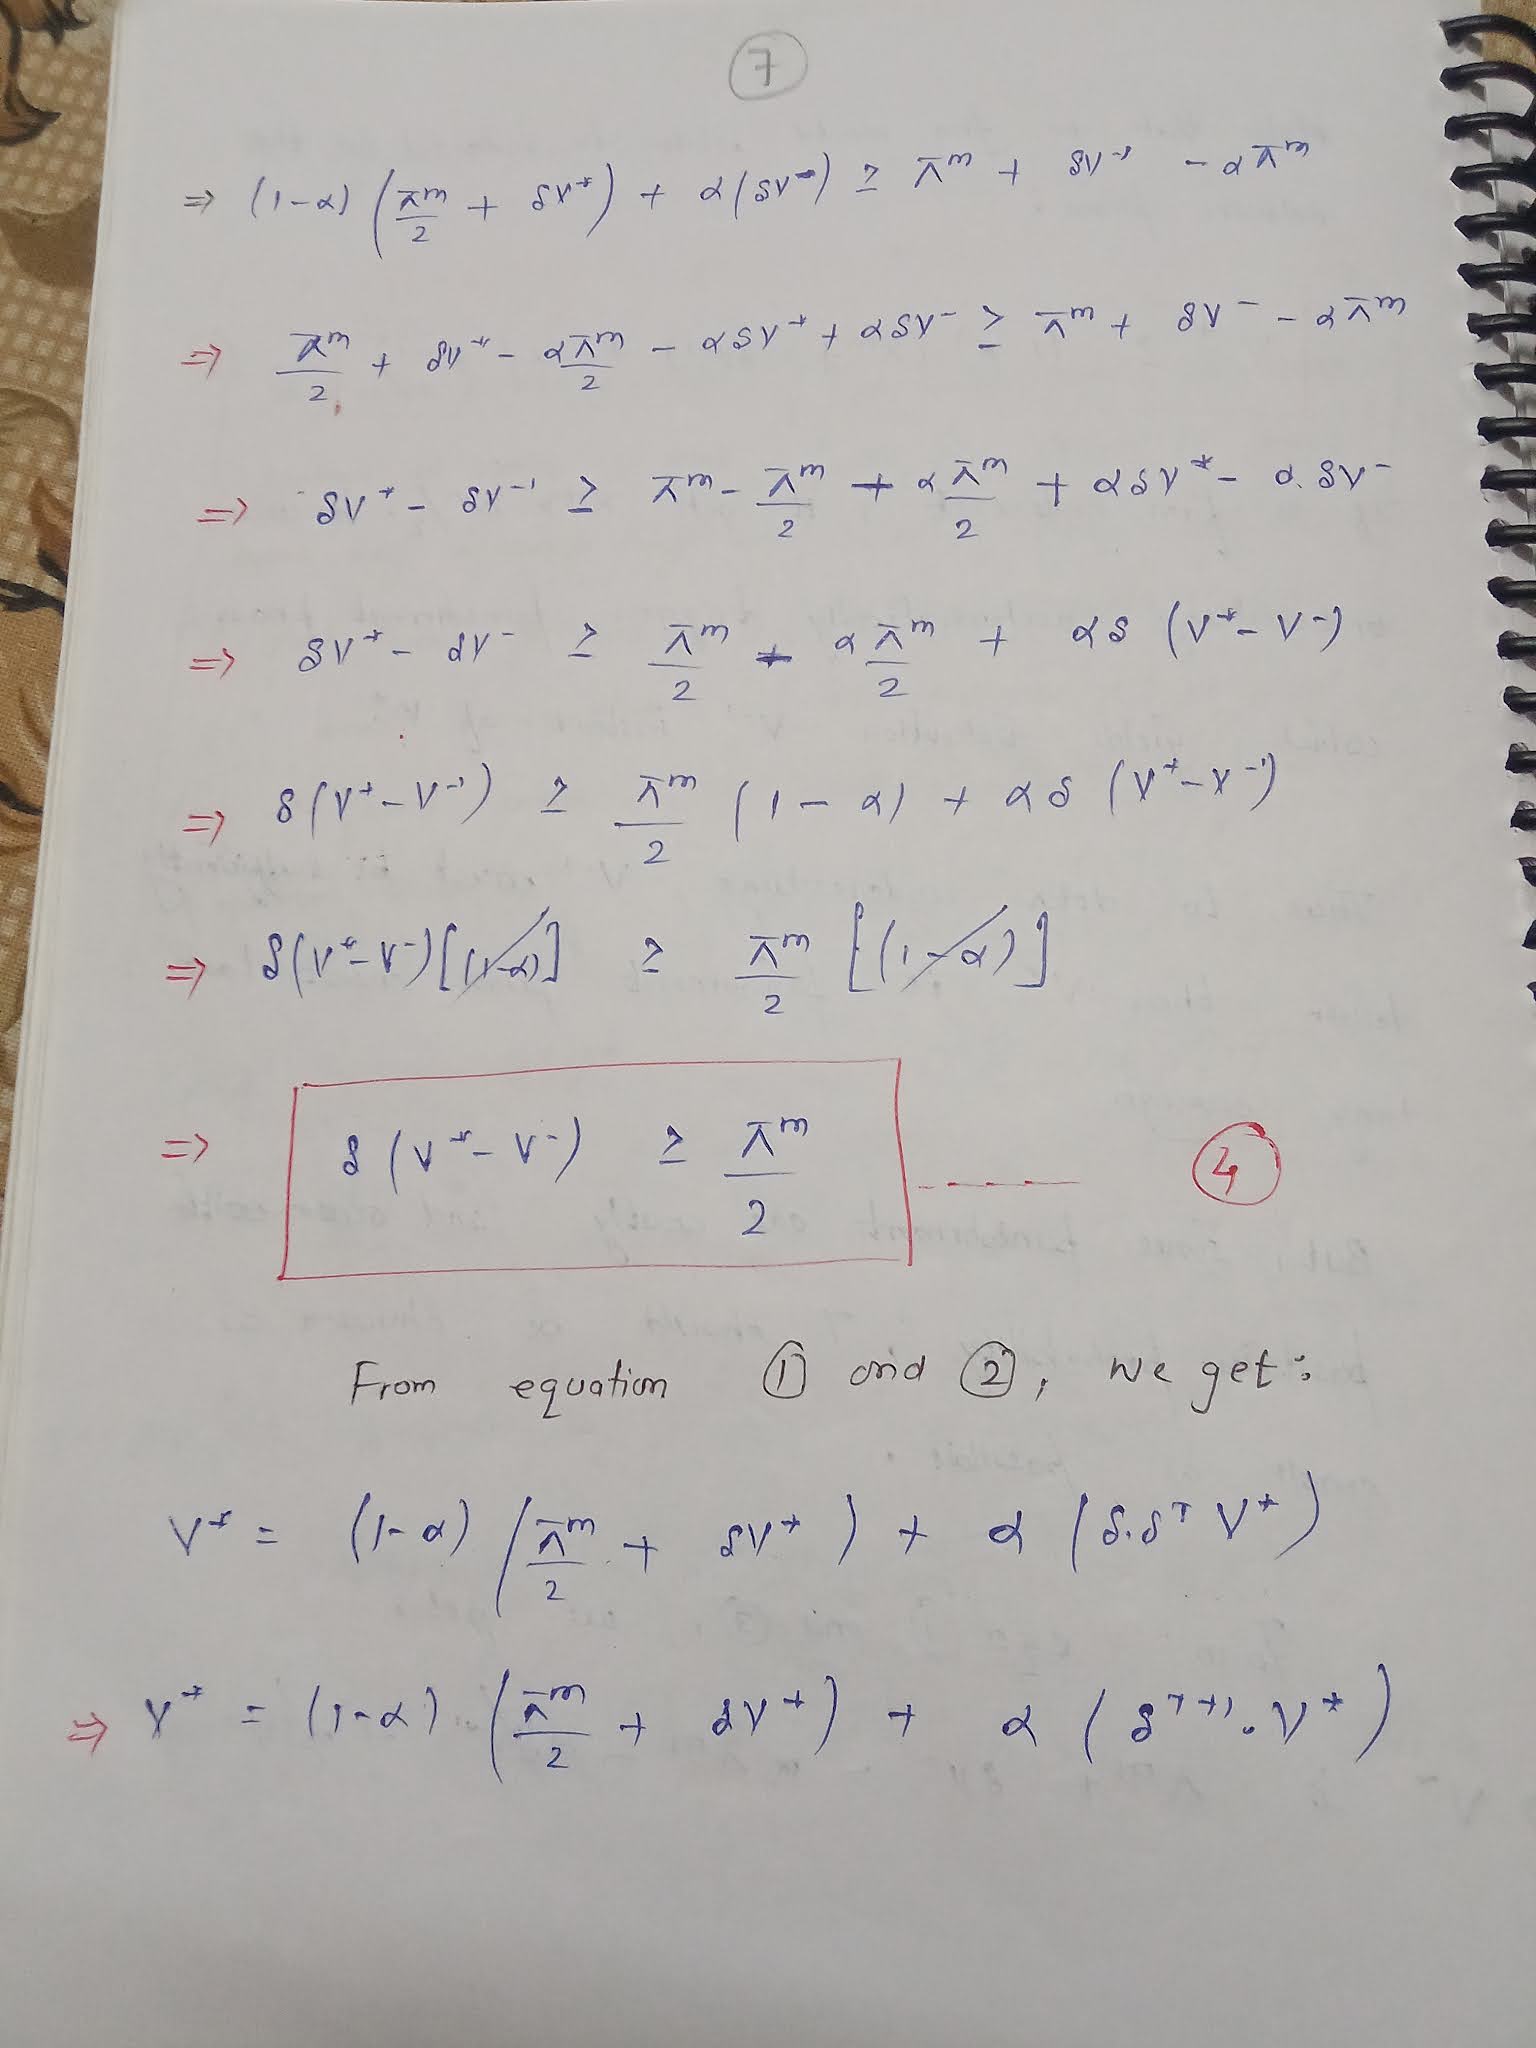 7
⇒ (1-α) (π^m/2 + δV⁺) + α(δV⁻) ≥ π^m + δV⁻ - απ^m
⇒ π^m/2 + δV⁺ - απ^m/2 - αδV⁺ + αδV⁻ ≥ π^m + δV⁻ - απ^m
⇒ δV⁺ - δV⁻ ≥ π^m - π^m/2 - απ^m/2 + αδV⁺ - α.δV⁻
⇒ δV⁺ - δV⁻ ≥ π^m/2 - απ^m/2 + αδ (V⁺ - V⁻)
⇒ δ(V⁺ - V⁻) ≥ π^m/2 (1 - α) + αδ (V⁺ - V⁻)
⇒ δ(V⁺ - V⁻)[(1-α)] ≥ π^m/2 [(1-α)]
⇒ δ (V⁺ - V⁻) ≥ π^m/2 ------- 4
From equation ① and ②, we get:
V⁺ = (1-α) (π^m/2 + δV⁺) + α (δ.δ^T V⁺)
⇒ V⁺ = (1-α) (π^m/2 + δV⁺) + α (δ^T+1 . V⁺)